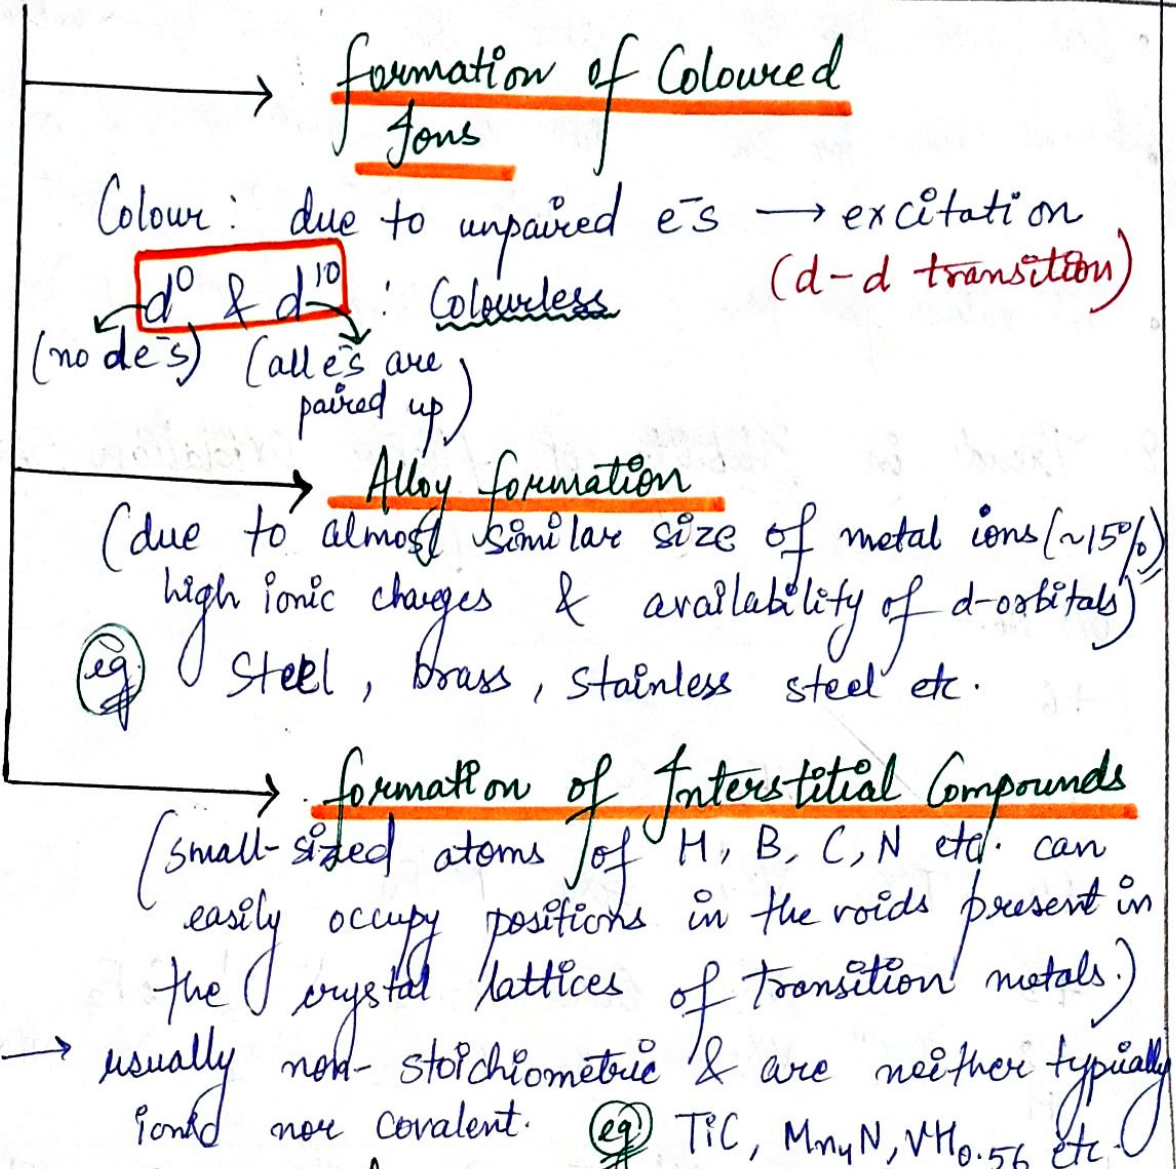 formation of Coloured
Ions
Colour : due to unpaired e⁻s → excitation
(d-d transition)
d⁰ & d¹⁰ : Colourless
(no de⁻s) (all e⁻s are
paired up)
Alloy formation
(due to almost similar size of metal ions (~15%)
high ionic charges & availability of d-orbitals)
eg. Steel, brass, stainless steel etc.
formation of Interstitial Compounds
(small-sized atoms of H, B, C, N etc. can
easily occupy positions in the voids present in
the crystal lattices of transition metals.)
→ usually non-stoichiometric & are neither typically
ionic nor covalent. eg TiC, Mn₄N, VH₀.₅₆ etc.